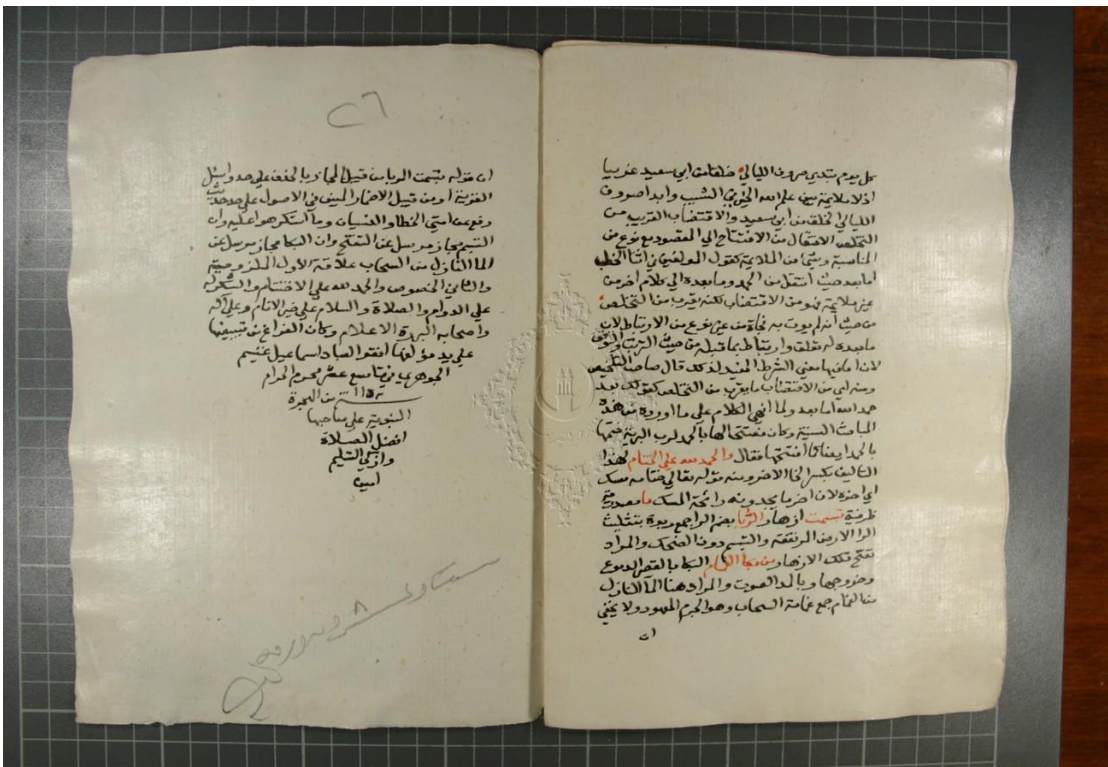 كل يوم تبتدي صروف الليالي خلقا من ابي سعيد غريبا
اذ لا ملايمة بين علم الله الخير في الشيب وابدا صروف
الليالي الخلق من ابي سعيد والاقتضاب القريب من
التخلص الانتقال من الافتتاح الي المقصود مع نوع من
المناسبة وشيا من الملايمة كقول المولفين في اثنا الخطب
اما بعد حيث انتقل من الحمد وما بعده الي كلام اخر من
غير ملايمة فهو من الاقتضاب لكنه قريب من التخلص
من حيث انه لم يوت به فجأة من غير نوع من الارتباط لان
ما بعده له تعلق وارتباط بما قبله من حيث الترتب
لان اما فيها معني الشرط المفيد لذلك قال صاحب التلخيص
ومنه اي من الاقتضاب ما يقرب من التخلص كقولك بعد
حمد الله اما بعد ولما انهي الكلام علي ما اورده من هذه
المباحث السنية وكان مفتتحا لها بالحمد لرب البرية ختمها
بالحمد ايضا كما افتتحها فقال والحمد لله علي الختام لهذا
التاليف بكسر الخا الاخر ومنه قوله تعالي ختامه مسك
اي اخره لان اخر ما يجدونه رائحة المسك ما مصدرية
ظرفية تبسمت ازهار الربا بضم الرا جمع ربوة بتثليث
الرا الارض المرتفعة والتبسم دون الضحك والمراد
تفتح تلك الازهار من بكا الغمام البكا بالقصر الدموع
وخروجها وبالمد الصوت والمراد هنا الما النازل
من الغمام جمع غمامة السحاب وهو الجرم المعهود ولا يخفي
ان
٢٦
ان قوله تبسمت الربا من قبيل المجاز بالحذف علي حد واسئل
القرية او من قبيل الاضمار المبين في الاصول علي حد حديث
رفع عن امتي الخطا والنسيان وما استكرهوا عليه وان
التبسم مجاز مرسل عن التفتح وان البكا مجاز مرسل عن
الما النازل من السحاب علاقة الاول الملزومية
والثاني الخصوص والحمد لله علي الاختتام والشكر له
علي الدوام والصلاة والسلام علي خير الانام وعلي اله
واصحابه البررة الاعلام وكان الفراغ من تبييضها
علي يد مؤلفها افقر العباد اسماعيل غنيم
الجوهري في تاسع عشر محرم الحرام
من الهجرة
النبوية علي صاحبها
افضل الصلاة
وازكي التسليم
امين